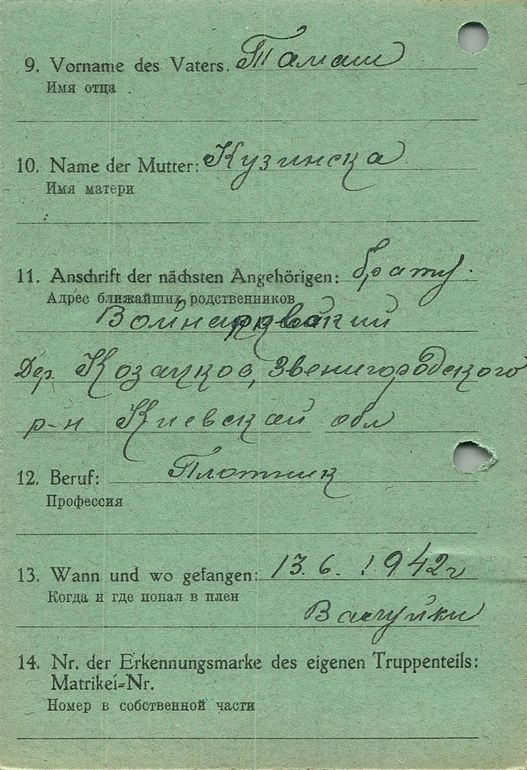 9. Vorname des Vaters. Тамаш
Имя отца
10. Name der Mutter: Кузинска
Имя матери
11. Anschrift der nächsten Angehörigen: брату.
Адрес ближайших родственников
Дер. Козацков, Звенигородского
р-н Киевской обл
12. Beruf: Плотник
Профессия
13. Wann und wo gefangen: 13.6. 1942г
Когда и где попал в плен
Валуйки
14. Nr. der Erkennungsmarke des eigenen Truppenteils:
Matrikel=Nr.
Номер в собственной части